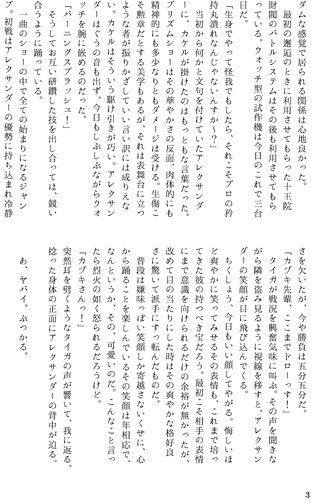 ダムな感覚で居られる関係は心地良かった。
最初の邂逅のときに利用させてもらった十王院
財閥のバトルシステムはその後も利用させてもら
っている。ウォッチ型の試作機は今日のこれで三台
「生身でやって怪我でもしたら、それこそプロの矜
持丸潰れなんじゃないんすか〜？」
当初から何かと文句を付けていたアレクサンダ
ーに、カケルが掛けたのはもっともな言葉だった。
プリズムショーはその華やかさの反面、肉体的にも
精神的にも多少なりともダメージは受ける。生傷こ
そ勲章だとする美学もあるが、それは表舞台に立つ
ような者が振りかざしていい言い訳には成りえな
い。カケルはそういう駆け引きが巧い。アレクサン
ダーはぐうの音も出ず、今日もしぶしぶながらウォ
ッチを腕に嵌めるのだった。
「バーニングスプラッシュ！」
そうしてお互い研鑽した技を出し合っては、競い
合うように踊っている。
一曲のショーの中で全ての始まりになるジャン
プ。初戦はアレクサンダーの優勢に持ち込まれ冷静
さを欠いたが、今や勝負は五分五分だ。
「カヅキ先輩、ここまでドローっす！」
タイガが戦況を興奮気味に叫ぶ。その声を聞きな
がら隣を盗み見るように視線を移すと、アレクサン
ダーの笑顔が目に飛び込んでくる。
ちくしょう、今日もいい顔してやがる。悔しいほ
ど爽やかに笑ってみせるその表情も、これまで培っ
てきた彼の持つべき宝だろう。最初こそ相手の表情
にまで意識を向けられるだけの余裕が無かったが、
改めて目の当たりにした時はその爽やかな格好良
さに驚いて派手にすっ転んだものだ。
普段は嫌味っぽい笑顔しか寄越さないくせに、心
から踊ることを楽しんでいるその笑顔は年相応で、
なんというか、その、可愛いのだ。こんなこと言っ
たら烈火の如く怒られるだろうけど。
「カヅキさんっ！」
突然耳を劈くようなタイガの声が響いて、我に返る。
捻った身体の正面にアレクサンダーの背中が迫る。
あ、ヤバイ。ぶつかる。
3